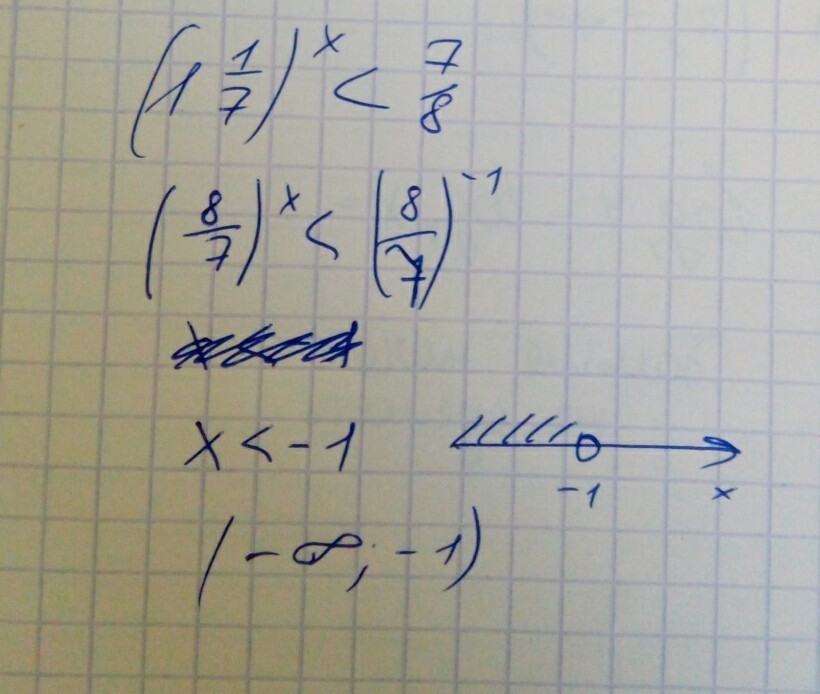 (1 1/7)^x < 7/8
(8/7)^x < (8/7)^-1
x < -1
-1 x
(-∞; -1)